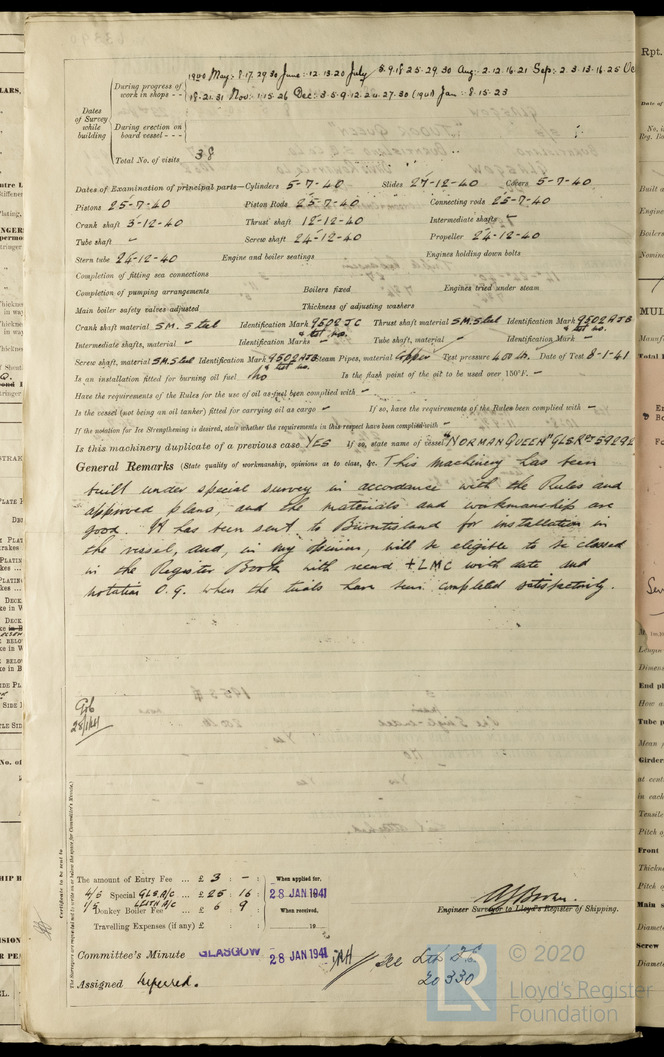 1940 May: 8.17.29.30 June: 12.13.20 July 5.9.18.25.29.30 Aug: 2.12.16.21 Sep: 2.3.13.16.25 Oc
Dates of Survey while building
During progress of work in shops - -
18.21.31 Nov: 1.15.26 Dec: 3.5.9.12.24.27.30 (1941) Jan: 8.15.23
During erection on board vessel - - -
Total No. of visits 38
Dates of Examination of principal parts—Cylinders 5-7-40 Slides 27-12-40 Covers 5-7-40
Pistons 25-7-40 Piston Rods 25-7-40 Connecting rods 25-7-40
Crank shaft 3-12-40 Thrust shaft 12-12-40 Intermediate shafts -
Tube shaft - Screw shaft 24-12-40 Propeller 24-12-40
Stern tube 24-12-40 Engine and boiler seatings Engines holding down bolts
Completion of fitting sea connections
Completion of pumping arrangements Boilers fixed Engines tried under steam
Main boiler safety valves adjusted Thickness of adjusting washers
Crank shaft material S.M. Steel Identification Mark 9502 JC & test no. Thrust shaft material S.M. Steel Identification Mark 9502 AJB & test no.
Intermediate shafts, material - Identification Marks - Tube shaft, material Identification Mark -
Screw shaft, material S.M. Steel Identification Mark 9502 AJB & test no. Steam Pipes, material Copper Test pressure 400 lb. Date of Test 8-1-41
Is an installation fitted for burning oil fuel No Is the flash point of the oil to be used over 150°F. -
Have the requirements of the Rules for the use of oil as fuel been complied with -
Is the vessel (not being an oil tanker) fitted for carrying oil as cargo - If so, have the requirements of the Rules been complied with -
If the notation for Ice Strengthening is desired, state whether the requirements in this respect have been complied with -
Is this machinery duplicate of a previous case YES If so, state name of vessel "NORMAN QUEEN" GLS. Rpt 59292
General Remarks (State quality of workmanship, opinions as to class, &c. This machinery has been
built under special survey in accordance with the Rules and
approved plans, and the materials and workmanship are
good. It has been sent to Burntisland for installation in
the vessel, and, in my opinion, will be eligible to be classed
in the Register Book with record +LMC with date and
notation O.G. when the trials have been completed satisfactorily.
28/1/41
Certificate to be sent to
The amount of Entry Fee ... £ 3 : - :
4/5 Special GLS. A/C ... £ 25 : 16 :
1/5 LEITH A/C
Donkey Boiler Fee £ 6 : 9
Travelling Expenses (if any) £ : :
When applied for,
28 JAN 1941
When received,
19
Engineer Surveyor to Lloyd's Register of Shipping.
Committee's Minute GLASGOW 28 JAN 1941
Assigned Deferred.
See Lth
20330
© 2020
LR
Lloyd's Register
Foundation